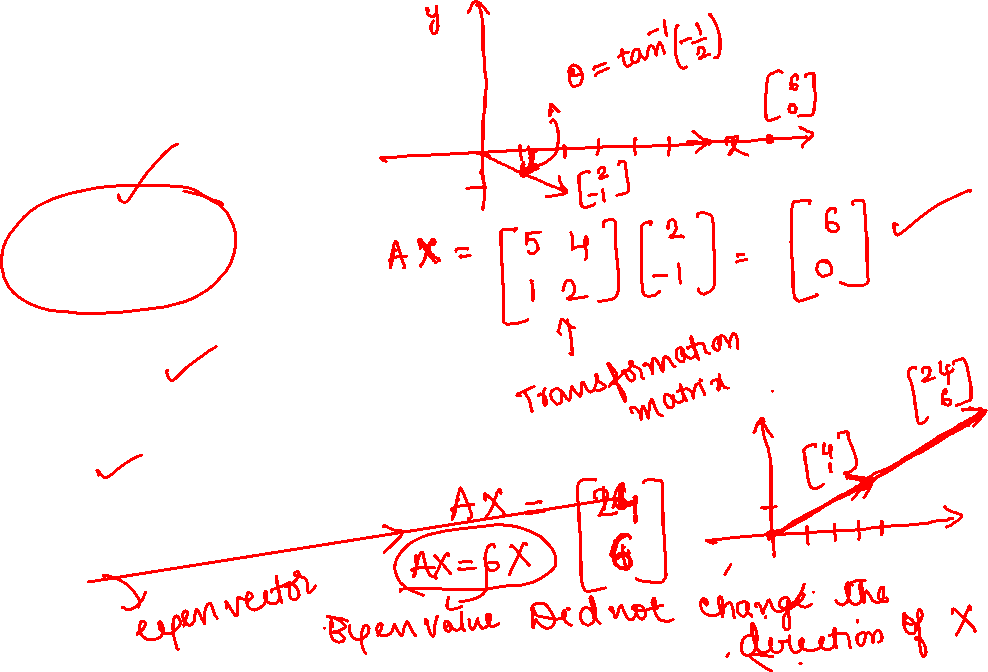 y
θ = tan⁻¹(-1/2)
[6 0]
x
[2 -1]
AX = [5 4 1 2] [2 -1] = [6 0]
Transformation
matrix
[24 6]
[4 1]
AX = [24 6]
AX = 6X
eigen vector
Eigen value Did not change the
direction of X